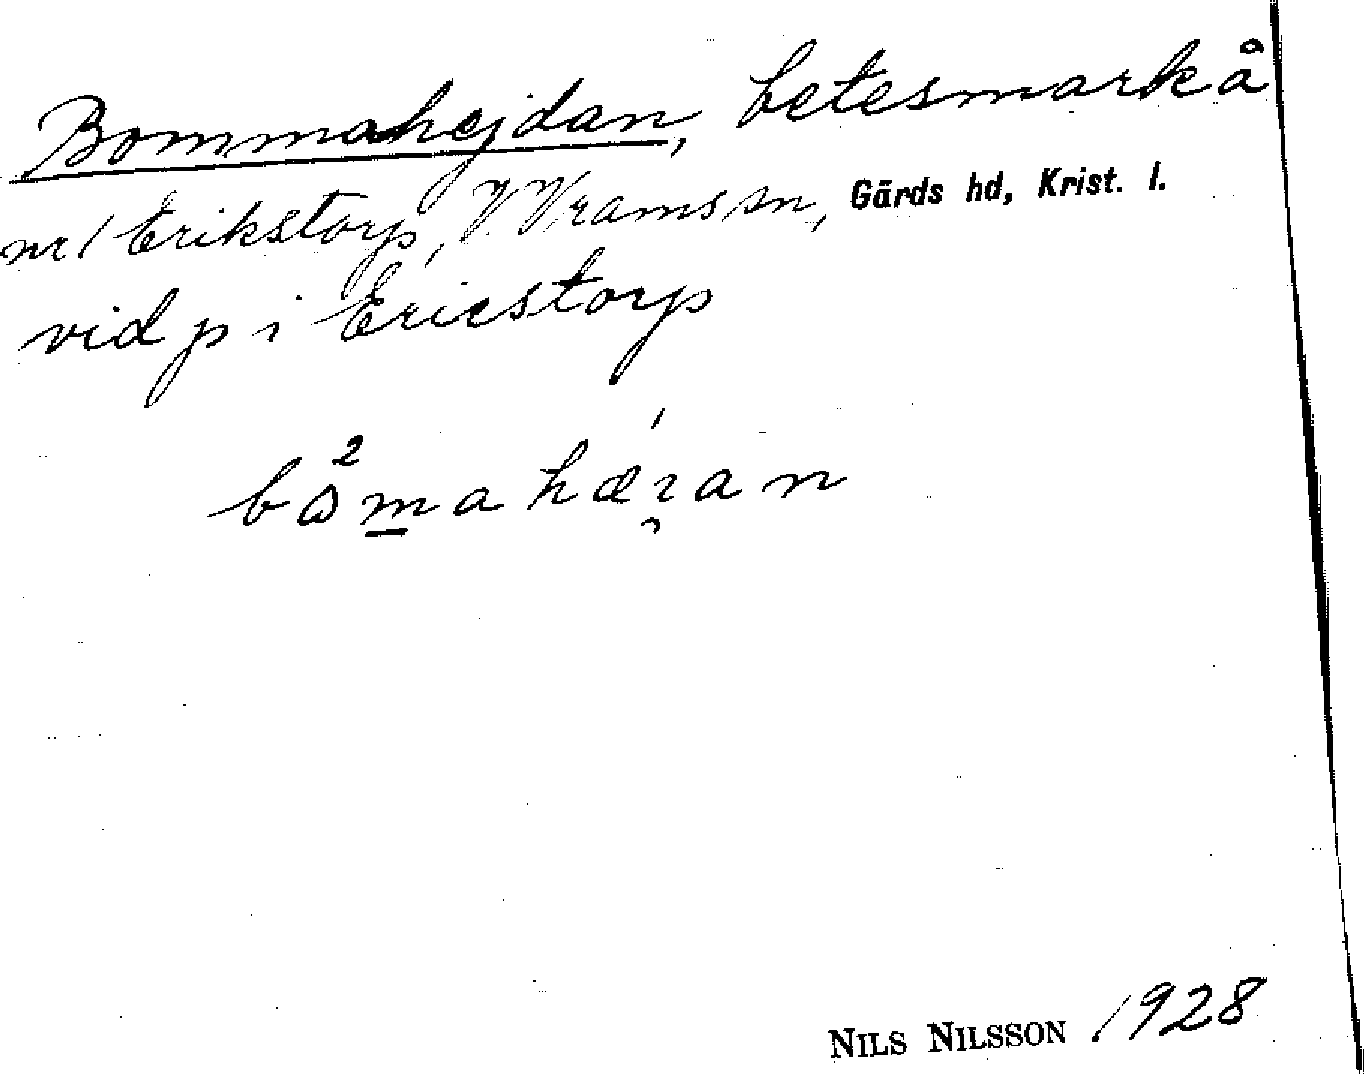 Bommahejdan, betesmark å
nr 1 Erikstorp, V. Vrams sn, Gärds hd, Krist. l.
vid p i Ericstorp
NILS NILSSON 1928